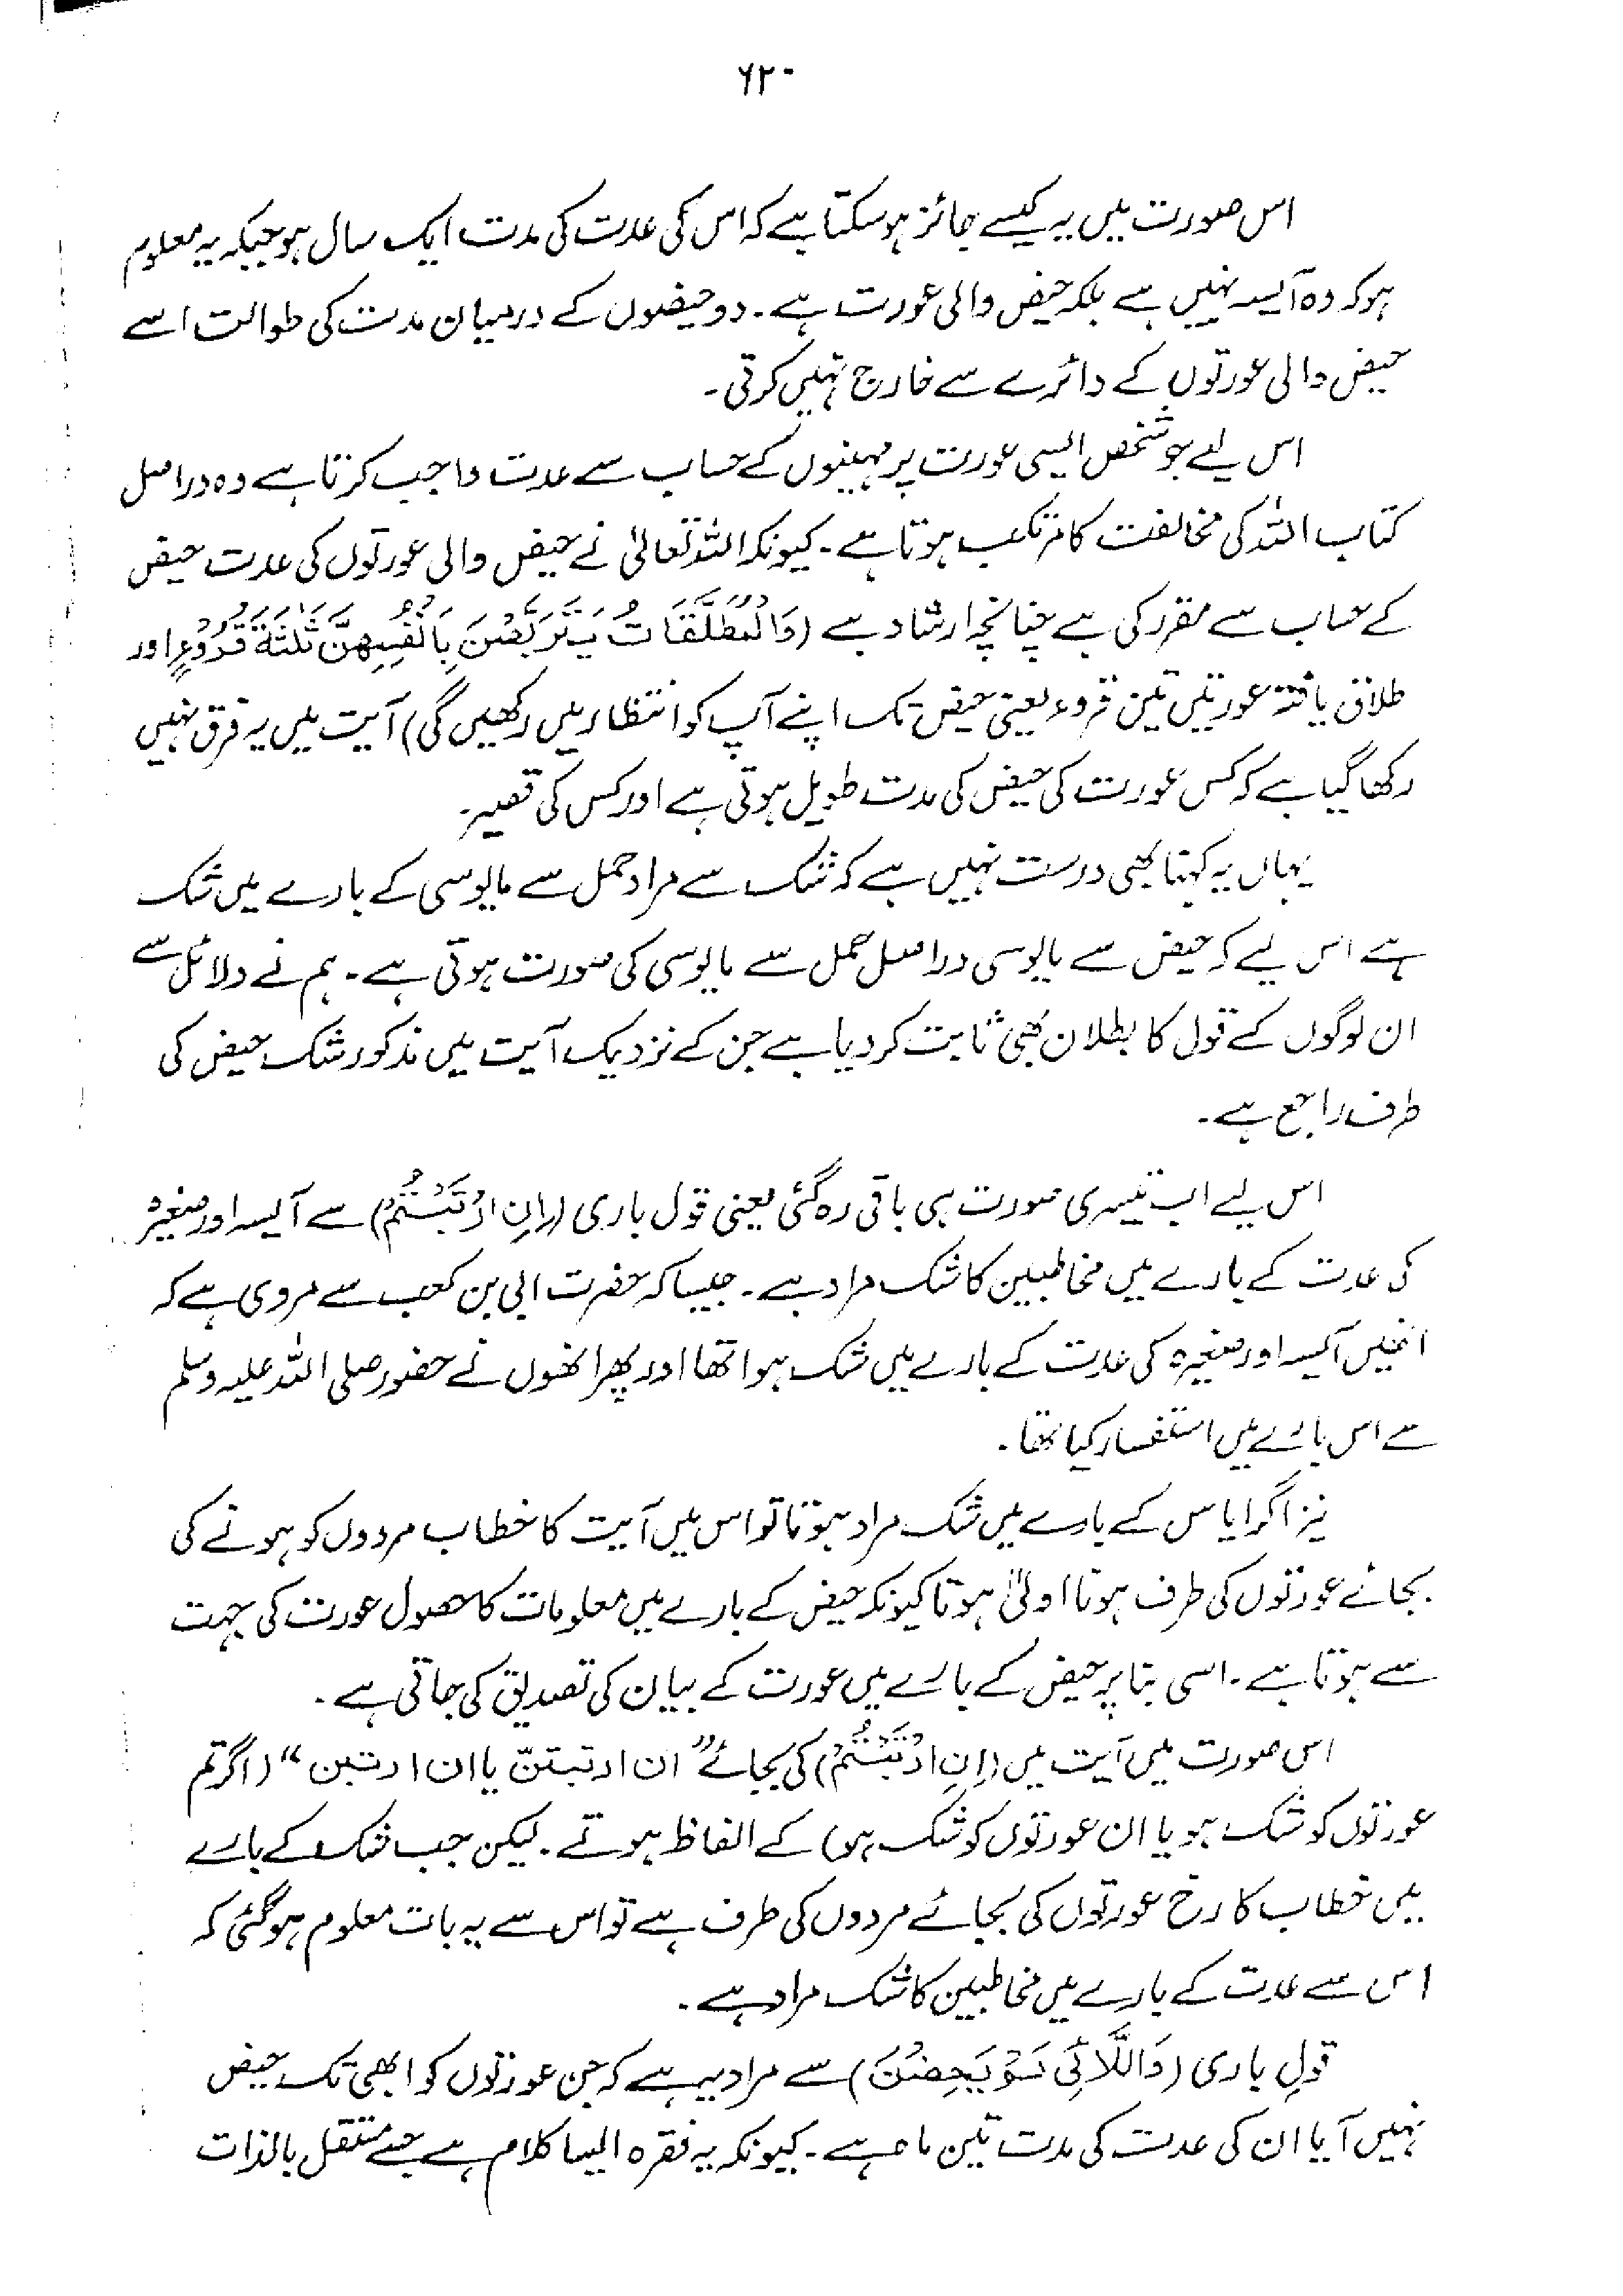 ۶۲۰
اس صورت میں یہ کیسے جائز ہو سکتا ہے کہ اس کی عدت کی مدت ایک سال ہو جبکہ یہ معلوم
ہو کہ وہ آیسہ نہیں ہے بلکہ حیض والی عورت ہے۔ دو حیضوں کے درمیان مدت کی طوالت اسے
حیض والی عورتوں کے دائرے سے خارج نہیں کرتی۔
اس لیے جو شخص ایسی عورت پر مہینوں کے حساب سے عدت واجب کرتا ہے وہ دراصل
کتاب اللہ کی مخالفت کا مرتکب ہوتا ہے۔ کیونکہ اللہ تعالیٰ نے حیض والی عورتوں کی عدت حیض
کے حساب سے مقرر کی ہے چنانچہ ارشاد ہے (وَالْمُطَلَّقَاتُ يَتَرَبَّصْنَ بِاَنْفُسِهِنَّ ثَلٰثَةَ قُرُوْءٍ اور
طلاق یافتہ عورتیں تین قروء یعنی حیض تک اپنے آپ کو انتظار میں رکھیں گی) آیت میں یہ فرق نہیں
رکھا گیا ہے کہ کس عورت کی حیض کی مدت طویل ہوتی ہے اور کس کی قصیر۔
یہاں یہ کہنا بھی درست نہیں ہے کہ شک سے مراد حمل سے مایوسی کے بارے میں شک
ہے اس لیے کہ حیض سے مایوسی دراصل حمل سے مایوسی کی صورت ہوتی ہے۔ ہم نے دلائل سے
ان لوگوں کے قول کا بطلان بھی ثابت کر دیا ہے جن کے نزدیک آیت میں مذکور شک حیض کی
طرف راجع ہے۔
اس لیے اب تیسری صورت ہی باقی رہ گئی یعنی قول باری (اِنِ ارْتَبْتُمْ) سے آیسہ اور صغیرہ
کی عدت کے بارے میں مخاطبین کا شک مراد ہے۔ جیسا کہ حضرت ابی بن کعب سے مروی ہے کہ
انھیں آیسہ اور صغیرہ کی عدت کے بارے میں شک ہوا تھا اور پھر انھوں نے حضور صلی اللہ علیہ وسلم
سے اس بارے میں استفسار کیا تھا۔
نیز اگر ایاس کے بارے میں شک مراد ہوتا تو اس میں آیت کا خطاب مردوں کو ہونے کی
بجائے عورتوں کی طرف ہونا اولیٰ ہوتا کیونکہ حیض کے بارے میں معلومات کا حصول عورت کی جہت
سے ہوتا ہے۔ اسی بنا پر حیض کے بارے میں عورت کے بیان کی تصدیق کی جاتی ہے۔
اس صورت میں آیت میں (اِنِ ارْتَبْتُمْ) کی بجائے "ان ارتبتنّ یا ان ارتبن" (اگر تم
عورتوں کو شک ہو یا ان عورتوں کو شک ہو) کے الفاظ ہوتے۔ لیکن جب شک کے بارے
میں خطاب کا رخ عورتوں کی بجائے مردوں کی طرف ہے تو اس سے یہ بات معلوم ہو گئی کہ
اس سے عدت کے بارے میں مخاطبین کا شک مراد ہے۔
قولِ باری (وَاللَّائِي لَمْ يَحِضْنَ) سے مراد یہ ہے کہ جن عورتوں کو ابھی تک حیض
نہیں آیا ان کی عدت کی مدت تین ماہ ہے۔ کیونکہ یہ فقرہ ایسا کلام ہے جسے مستقل بالذات